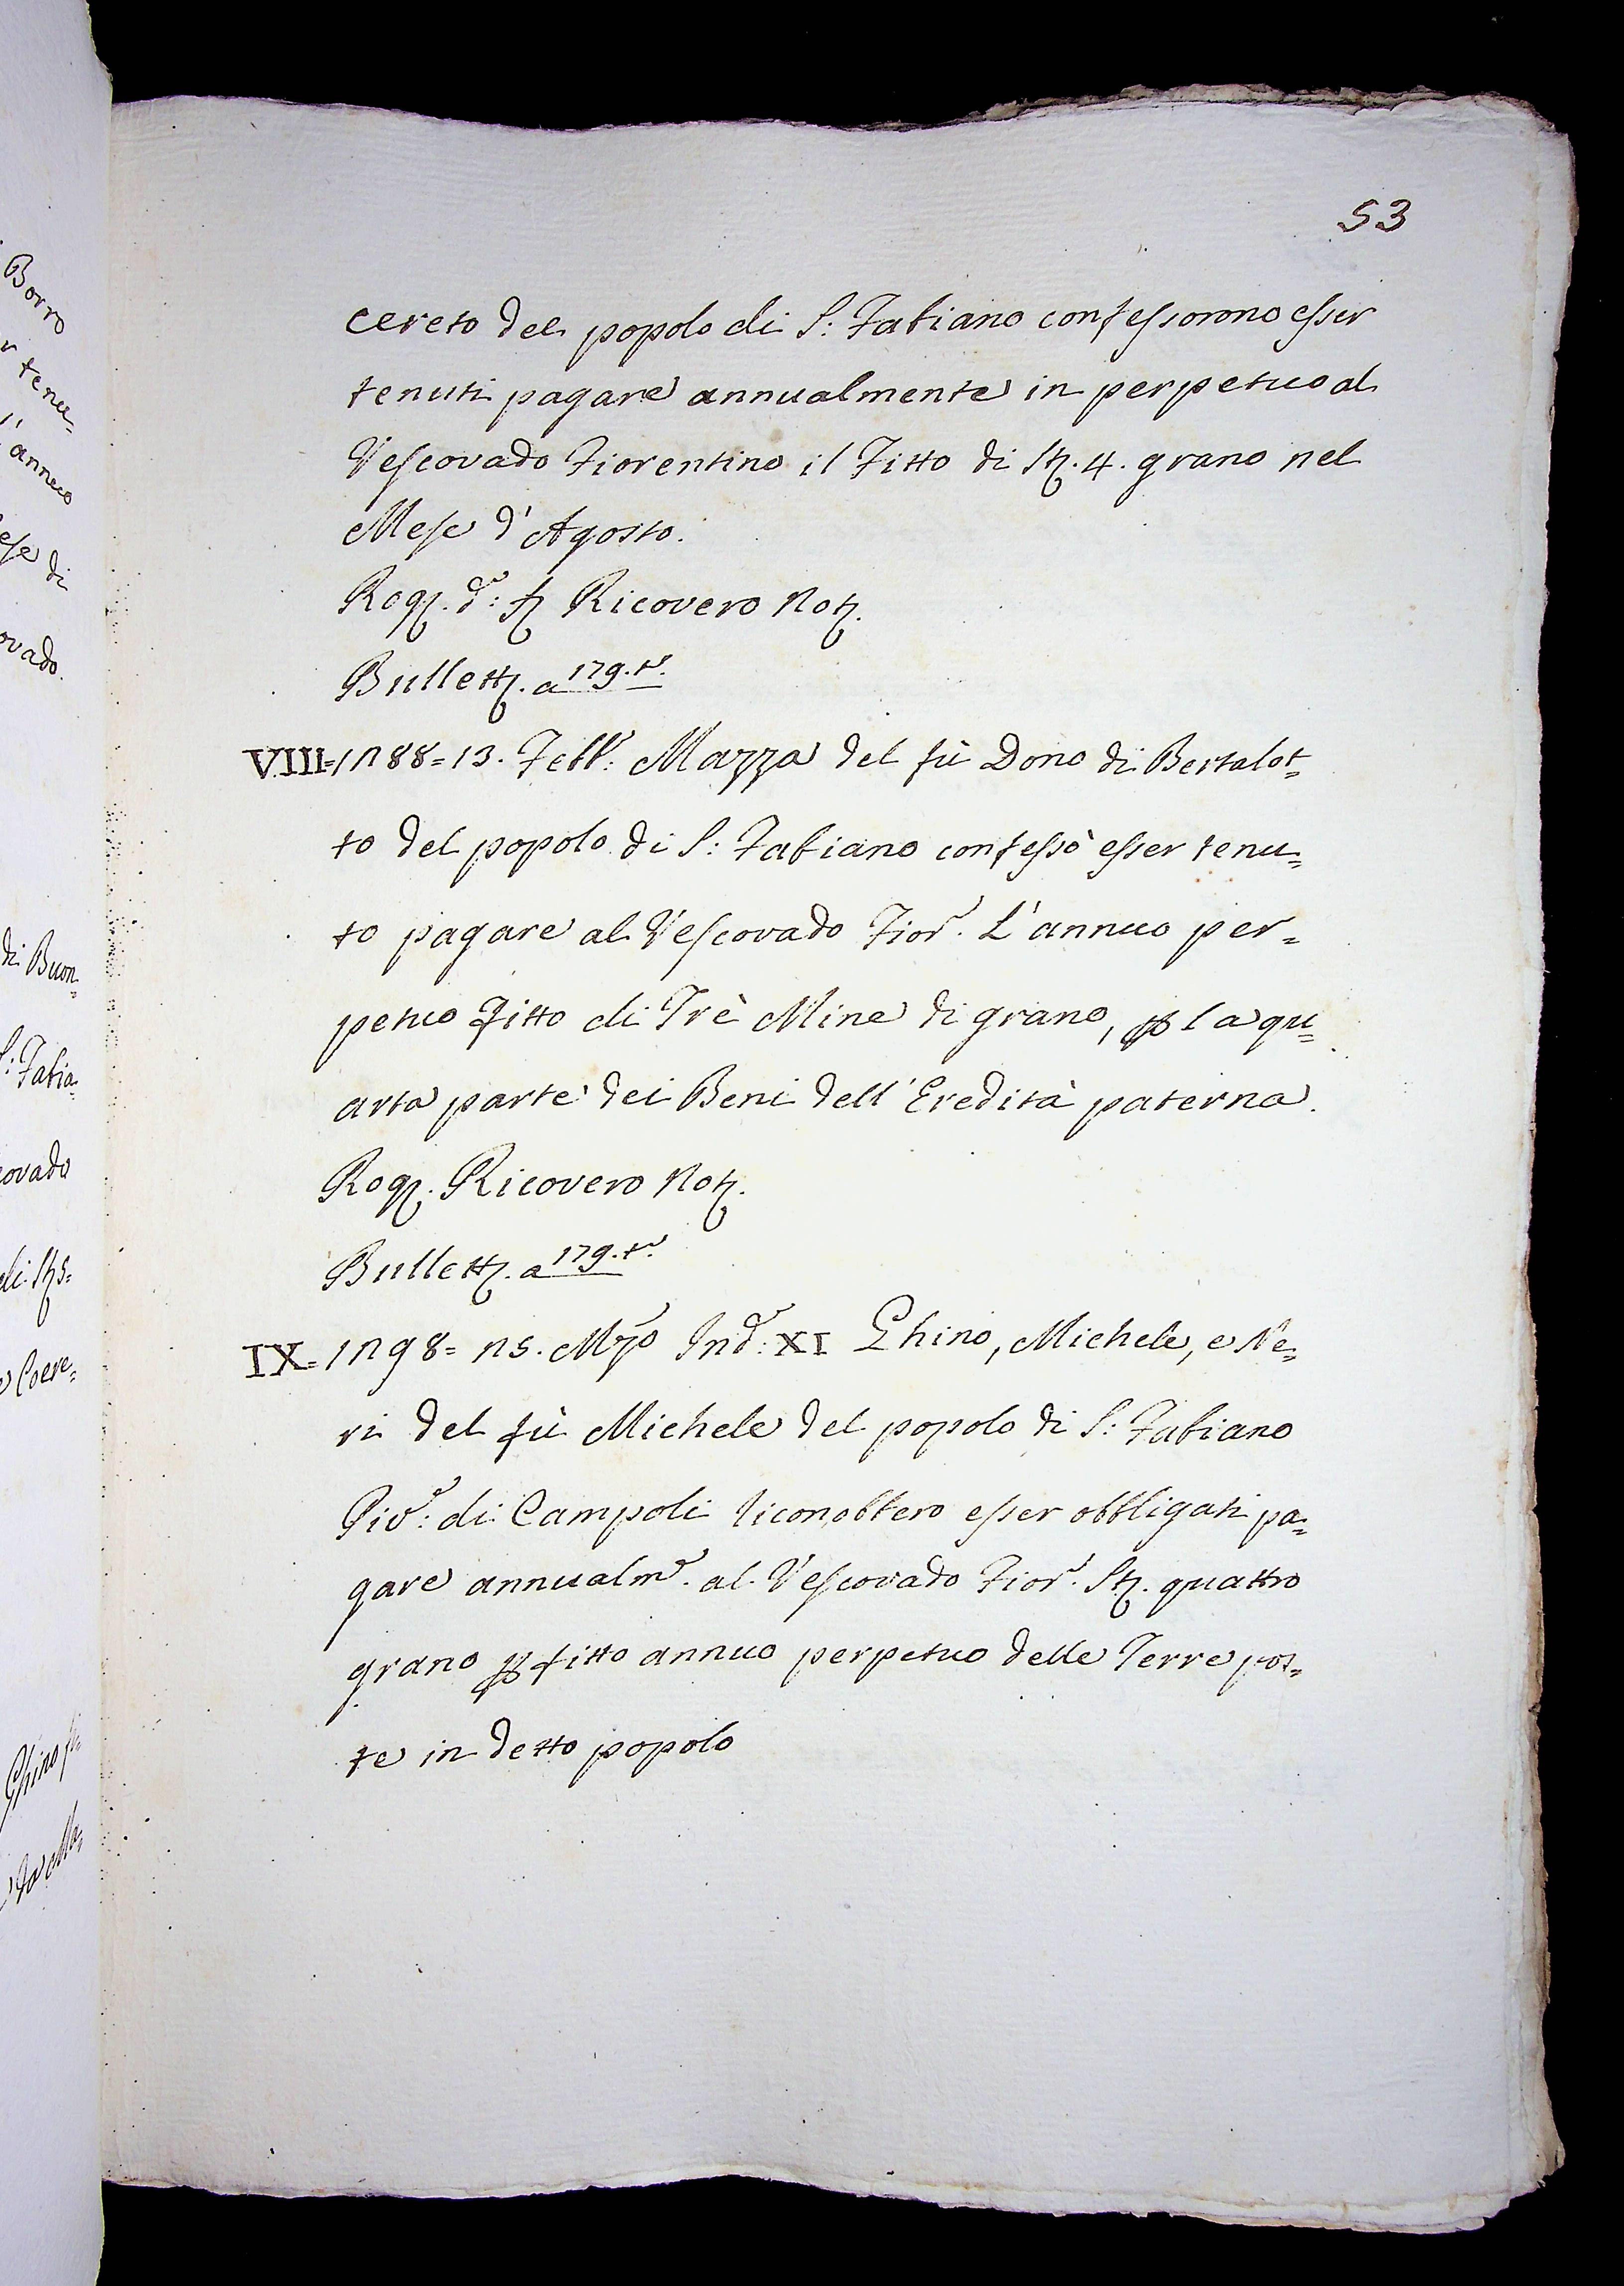 53
cereto del popolo di S: Fabiano confessorono esser
tenuti pagare annualmente in perpetuo al
Vescovado Fiorentino il Fitto di St. 4. grano nel
Mese d'Agosto.
Rog. d: Ricovero Not.
Bullett. a 179. t.
VIII=1288=13. Febb: Mazza del fù Dono di Bertalot=
to del popolo di S: Fabiano confessò esser tenu=
to pagare al Vescovado Fior. L'annuo per=
petuo fitto di Trè Mine di grano, p la qu=
arta parte dei Beni dell'Eredità paterna.
Rog. Ricovero Not.
Bullett. a 179. t.
IX=1298=25. Mzo Ind: XI Ghino, Michele, e Ne=
ri del fù Michele del popolo di S: Fabiano
Piv: di Campoli riconobbero esser obbligati pa=
gare annualm. al Vescovado Fior. St. quattro
grano p fitto annuo perpetuo delle Terre pos=
te in detto popolo
Borro
tenu=
l'annuo
ese di
ovado.
di Buon=
S: Fabia=
covado
di St 5=
Coere=
Ghino